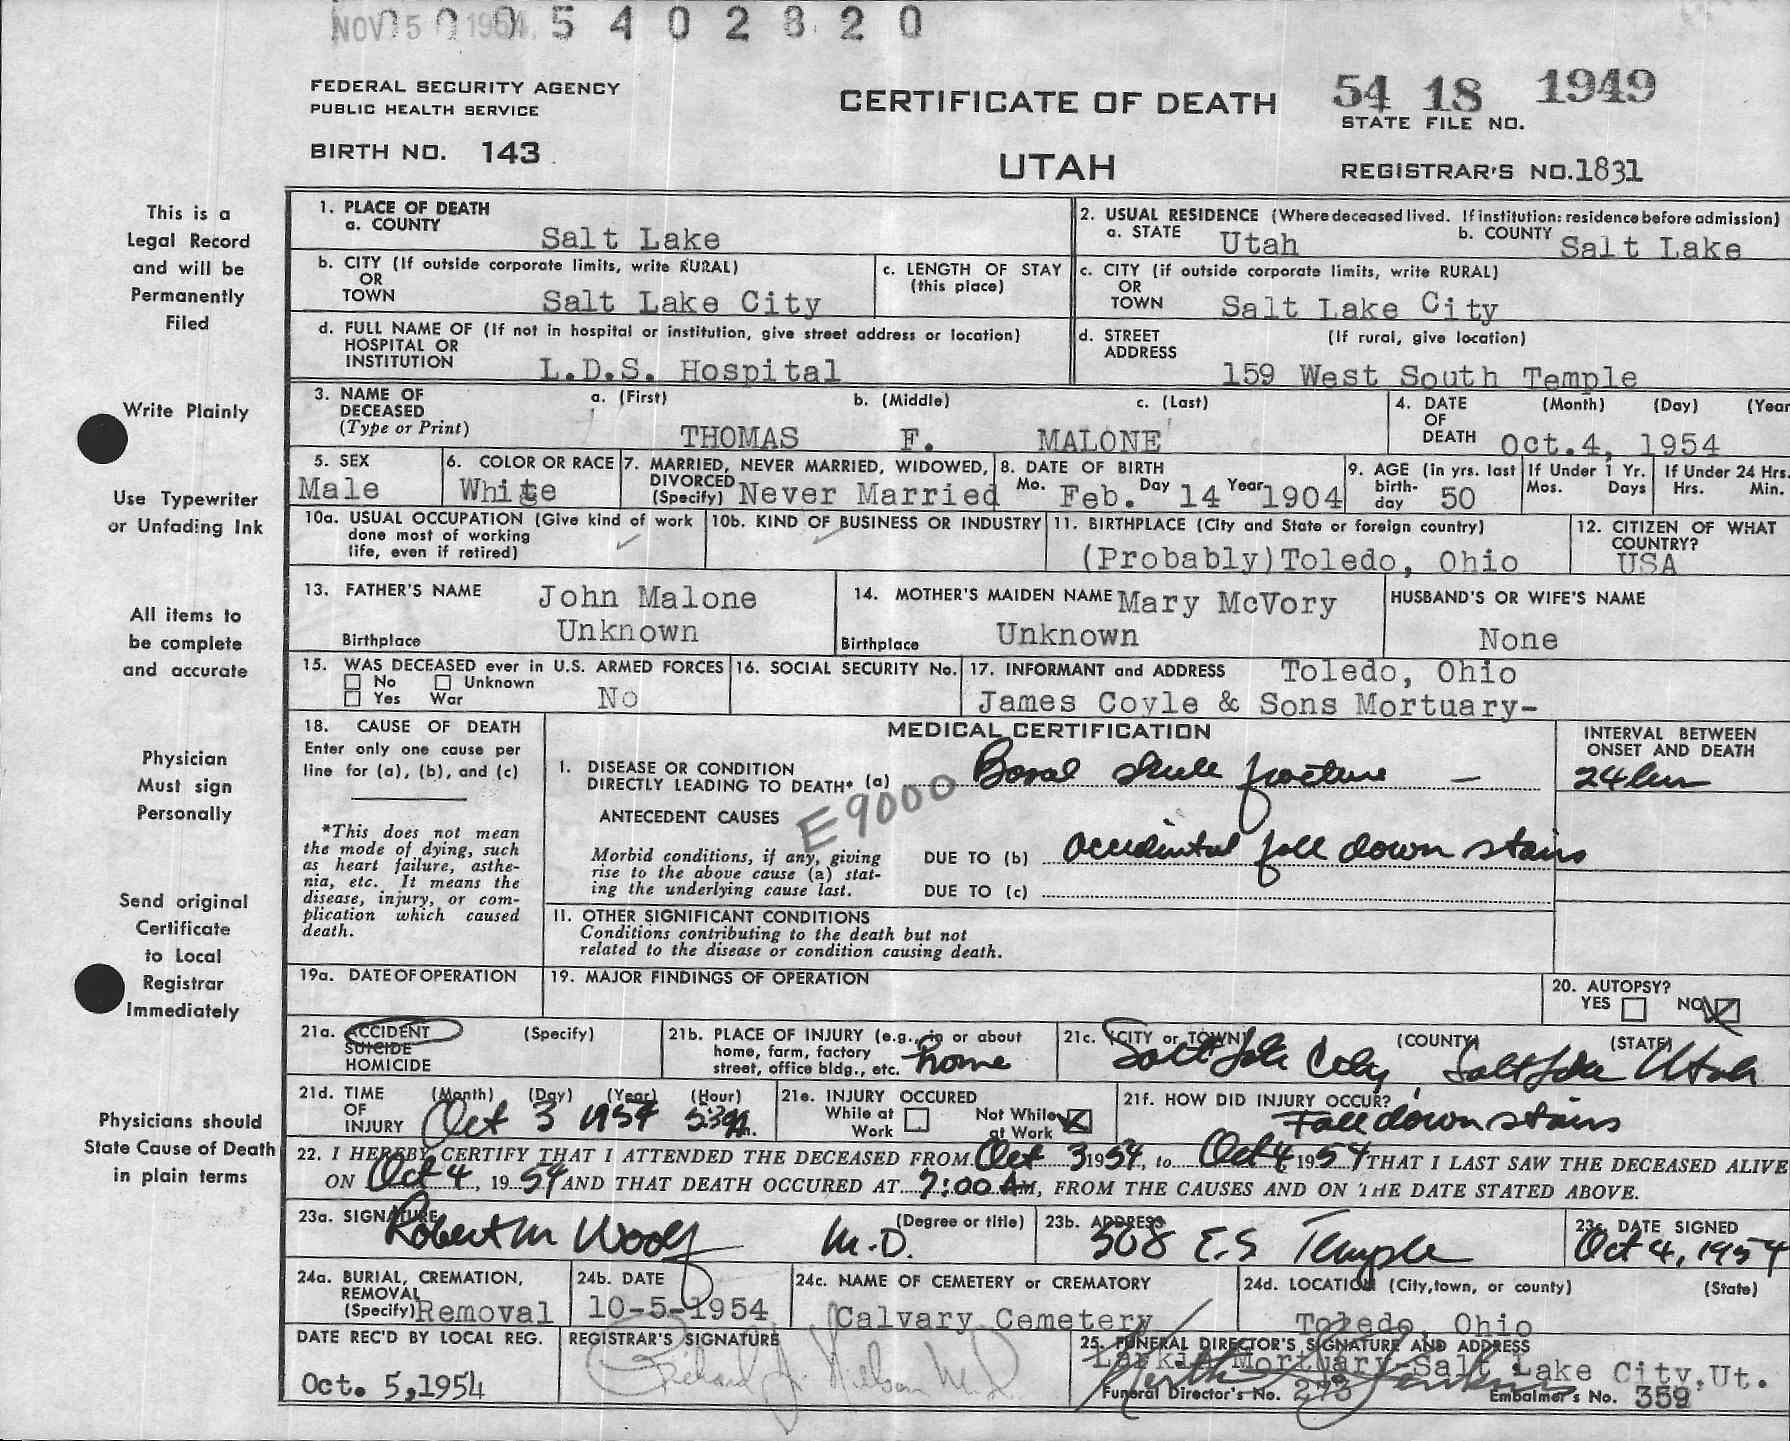 NOV 5 1954
0 0 5 4 0 2 8 2 0
FEDERAL SECURITY AGENCY
PUBLIC HEALTH SERVICE
CERTIFICATE OF DEATH
54 18 1949
STATE FILE NO.
BIRTH NO. 143
UTAH
REGISTRAR'S NO. 1831
This is a
Legal Record
and will be
Permanently
Filed
Write Plainly
Use Typewriter
or Unfading Ink
All items to
be complete
and accurate
Physician
Must sign
Personally
Send original
Certificate
to Local
Registrar
Immediately
Physicians should
State Cause of Death
in plain terms
1. PLACE OF DEATH
a. COUNTY Salt Lake
2. USUAL RESIDENCE (Where deceased lived. If institution: residence before admission)
a. STATE Utah b. COUNTY Salt Lake
b. CITY (If outside corporate limits, write RURAL)
OR
TOWN Salt Lake City
c. LENGTH OF STAY
(this place)
c. CITY (if outside corporate limits, write RURAL)
OR
TOWN Salt Lake City
d. FULL NAME OF (If not in hospital or institution, give street address or location)
HOSPITAL OR
INSTITUTION L.D.S. Hospital
d. STREET (If rural, give location)
ADDRESS
159 West South Temple
3. NAME OF a. (First) b. (Middle) c. (Last)
DECEASED
(Type or Print) THOMAS F. MALONE
4. DATE (Month) (Day) (Year
OF
DEATH Oct.4, 1954
5. SEX
Male
6. COLOR OR RACE
White
7. MARRIED, NEVER MARRIED, WIDOWED,
DIVORCED
(Specify) Never Married
8. DATE OF BIRTH
Mo. Feb. Day 14 Year 1904
9. AGE (in yrs. last
birth-
day 50
If Under 1 Yr.
Mos. Days
If Under 24 Hrs.
Hrs. Min.
10a. USUAL OCCUPATION (Give kind of work
done most of working
life, even if retired)
10b. KIND OF BUSINESS OR INDUSTRY
11. BIRTHPLACE (City and State or foreign country)
(Probably)Toledo, Ohio
12. CITIZEN OF WHAT
COUNTRY?
USA
13. FATHER'S NAME John Malone
Birthplace Unknown
14. MOTHER'S MAIDEN NAME Mary McVory
Birthplace Unknown
HUSBAND'S OR WIFE'S NAME
None
15. WAS DECEASED ever in U.S. ARMED FORCES
No Unknown
Yes War No
16. SOCIAL SECURITY No.
17. INFORMANT and ADDRESS Toledo, Ohio
James Coyle & Sons Mortuary-
18. CAUSE OF DEATH
Enter only one cause per
line for (a), (b), and (c)
*This does not mean
the mode of dying, such
as heart failure, asthe-
nia, etc. It means the
disease, injury, or com-
plication which caused
death.
MEDICAL CERTIFICATION
INTERVAL BETWEEN
ONSET AND DEATH
I. DISEASE OR CONDITION
DIRECTLY LEADING TO DEATH* (a) Basal skull fracture — 24 hrs
E9000
ANTECEDENT CAUSES
Morbid conditions, if any, giving
rise to the above cause (a) stat-
ing the underlying cause last.
DUE TO (b) accidental fall down stairs
DUE TO (c)
II. OTHER SIGNIFICANT CONDITIONS
Conditions contributing to the death but not
related to the disease or condition causing death.
19a. DATE OF OPERATION
19. MAJOR FINDINGS OF OPERATION
20. AUTOPSY?
YES NO
21a. ACCIDENT (Specify)
SUICIDE
HOMICIDE
21b. PLACE OF INJURY (e.g., in or about
home, farm, factory
street, office bldg., etc. home
21c. (CITY or TOWN) (COUNTY) (STATE)
Salt Lake City, Salt Lake Utah
21d. TIME (Month) (Day) (Year) (Hour)
OF
INJURY Oct 3 1954 m.
21e. INJURY OCCURED
While at Work
Not While at Work
21f. HOW DID INJURY OCCUR?
Fall down stairs
22. I HEREBY CERTIFY THAT I ATTENDED THE DECEASED FROM Oct 3 1954, to Oct 4 1954 THAT I LAST SAW THE DECEASED ALIVE
ON Oct 4, 1954 AND THAT DEATH OCCURED AT 7:00 AM, FROM THE CAUSES AND ON THE DATE STATED ABOVE.
23a. SIGNATURE (Degree or title)
Robert M Woolf M.D.
23b. ADDRESS
508 E.S Temple
23c. DATE SIGNED
Oct 4, 1954
24a. BURIAL, CREMATION,
REMOVAL
(Specify) Removal
24b. DATE
10-5-1954
24c. NAME OF CEMETERY or CREMATORY
Calvary Cemetery
24d. LOCATION (City, town, or county) (State)
Toledo, Ohio
DATE REC'D BY LOCAL REG.
Oct. 5,1954
REGISTRAR'S SIGNATURE
Richard J. Nielson M.D.
25. FUNERAL DIRECTOR'S SIGNATURE AND ADDRESS
Larkin Mortuary-Salt Lake City,Ut.
Funeral Director's No. 273 Embalmer's No. 359